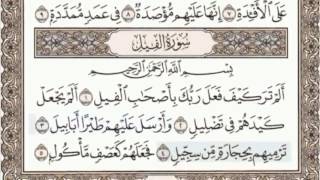 عَلَى ٱلْأَفْـِٔدَةِ ٧ إِنَّهَا عَلَيْهِم مُّؤْصَدَةٌ ٨ فِى عَمَدٍ مُّمَدَّدَةٍۭ ٩
سُورَةُ الفِيلِ
بِسْمِ ٱللَّهِ ٱلرَّحْمَٰنِ ٱلرَّحِيمِ
أَلَمْ تَرَ كَيْفَ فَعَلَ رَبُّكَ بِأَصْحَٰبِ ٱلْفِيلِ ١ أَلَمْ يَجْعَلْ
كَيْدَهُمْ فِى تَضْلِيلٍ ٢ وَأَرْسَلَ عَلَيْهِمْ طَيْرًا أَبَابِيلَ ٣
تَرْمِيهِم بِحِجَارَةٍ مِّن سِجِّيلٍ ٤ فَجَعَلَهُمْ كَعَصْفٍ مَّأْكُولٍۭ ٥